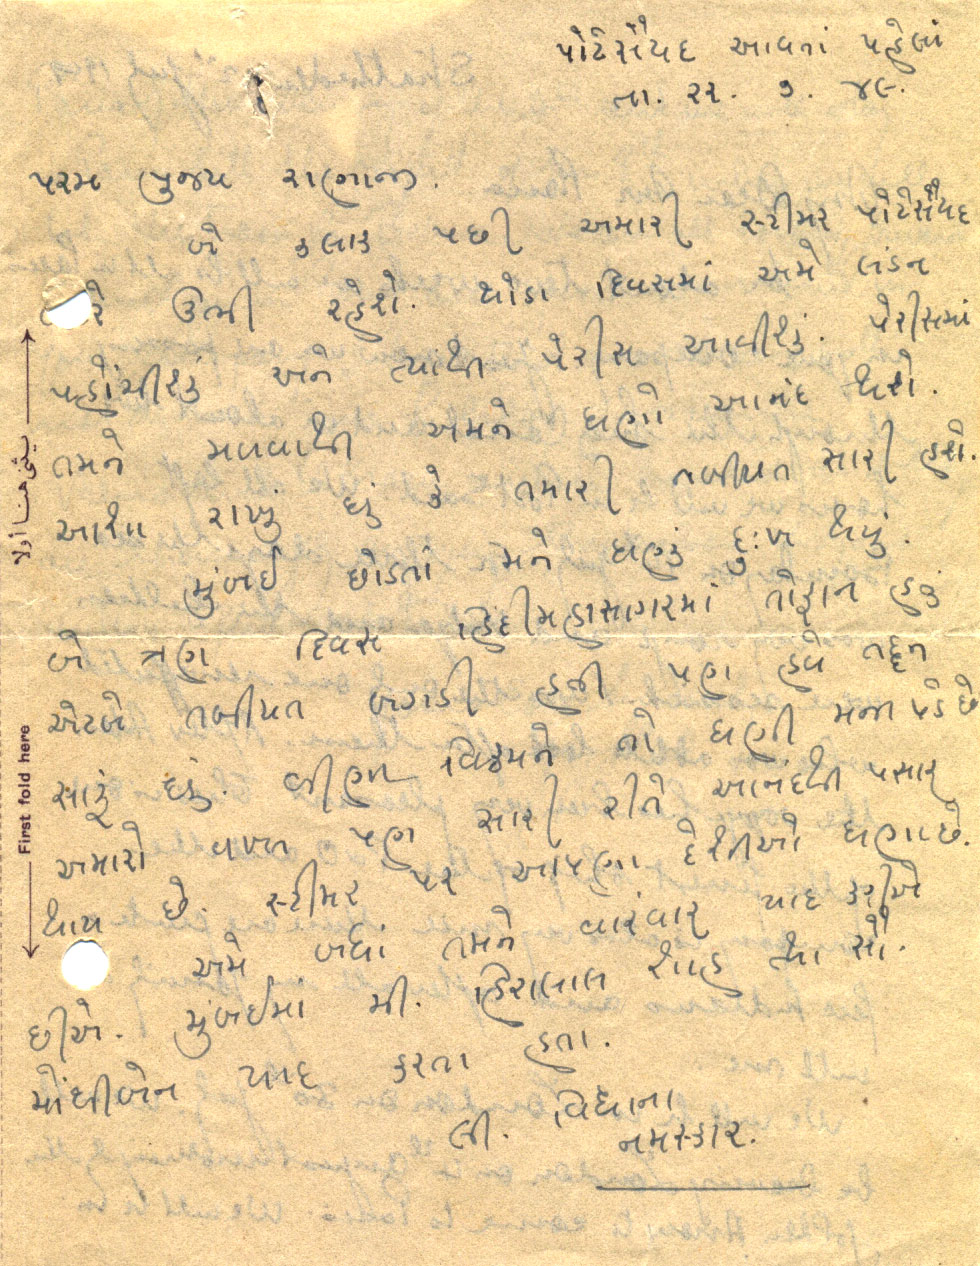 પોર્ટસૈયદ આવતાં પહેલાં
તા. ૨૨. ૭. ૪૯.
પરમ પુજ્ય રાણાજી.
બે કલાક પછી અમારી સ્ટીમર પોર્ટસૈયદ
ઉભી રહેશે. થોડા દિવસમાં અમે લંડન
પહોંચીશું અને ત્યાંથી પેરીસ આવીશું. પેરીસમાં
તમને મળવાથી અમને ઘણો આનંદ થશે.
આશા રાખું છું કે તમારી તબીયત સારી હશે.
મુંબઈ છોડતાં મને ઘણું દુઃખ થયું.
બે ત્રણ દિવસ હિંદીમહાસાગરમાં તોફાન હતું
એટલે તબીયત બગડી હતી પણ હવે તદ્દન
સારૂં છે. વિક્રમને તો ઘણી મજા પડે છે
અમારો વખત પણ સારી રીતે આનંદથી પસાર
થાય છે. સ્ટીમર પર આપણા દેશીઓ ઘણા છે.
અમે બધાં તમને વારંવાર યાદ કરીએ
છીએ. મુંબઈમાં શ્રી. હિરાલાલ શાહ તથા સૌ.
યાદ કરતા હતા.
લી. વિદ્યાના
નમસ્કાર.
First fold here
يثنى هنا أولا